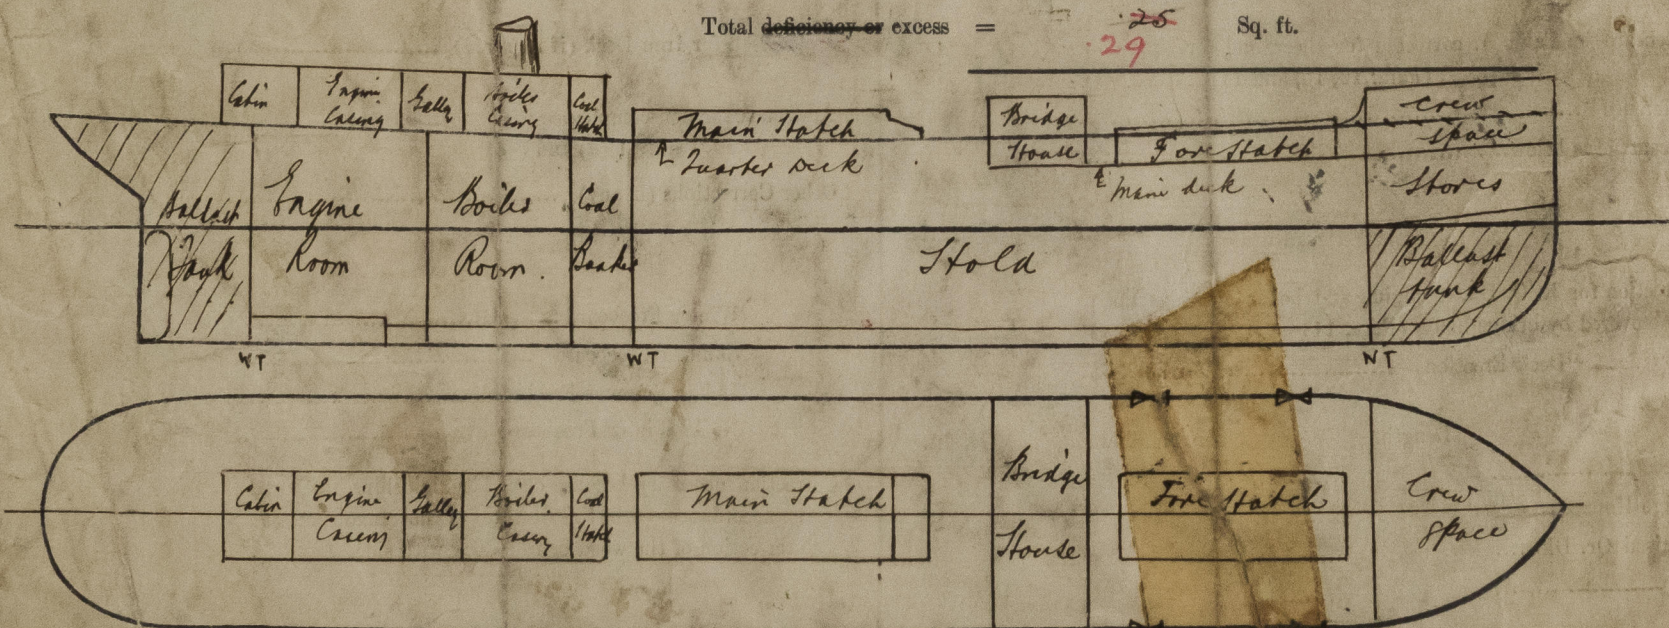 Total deficiency or excess = .25 Sq. ft.
.29
Cabin
Engine
Casing
Galley
Boiler
Casing
Coal
Hatch
Main Hatch
Quarter Deck
Bridge
House
Fore Hatch
Main deck
Crew
space
Stores
Ballast
Tank
Engine
Room
Boiler
Room.
Coal
Bunker
Hold
Ballast
tank
WT
WT
WT
Cabin
Engine
Casing
Galley
Boiler
Casing
Coal
Hatch
Main Hatch
Bridge
House
Fore Hatch
Crew
Space